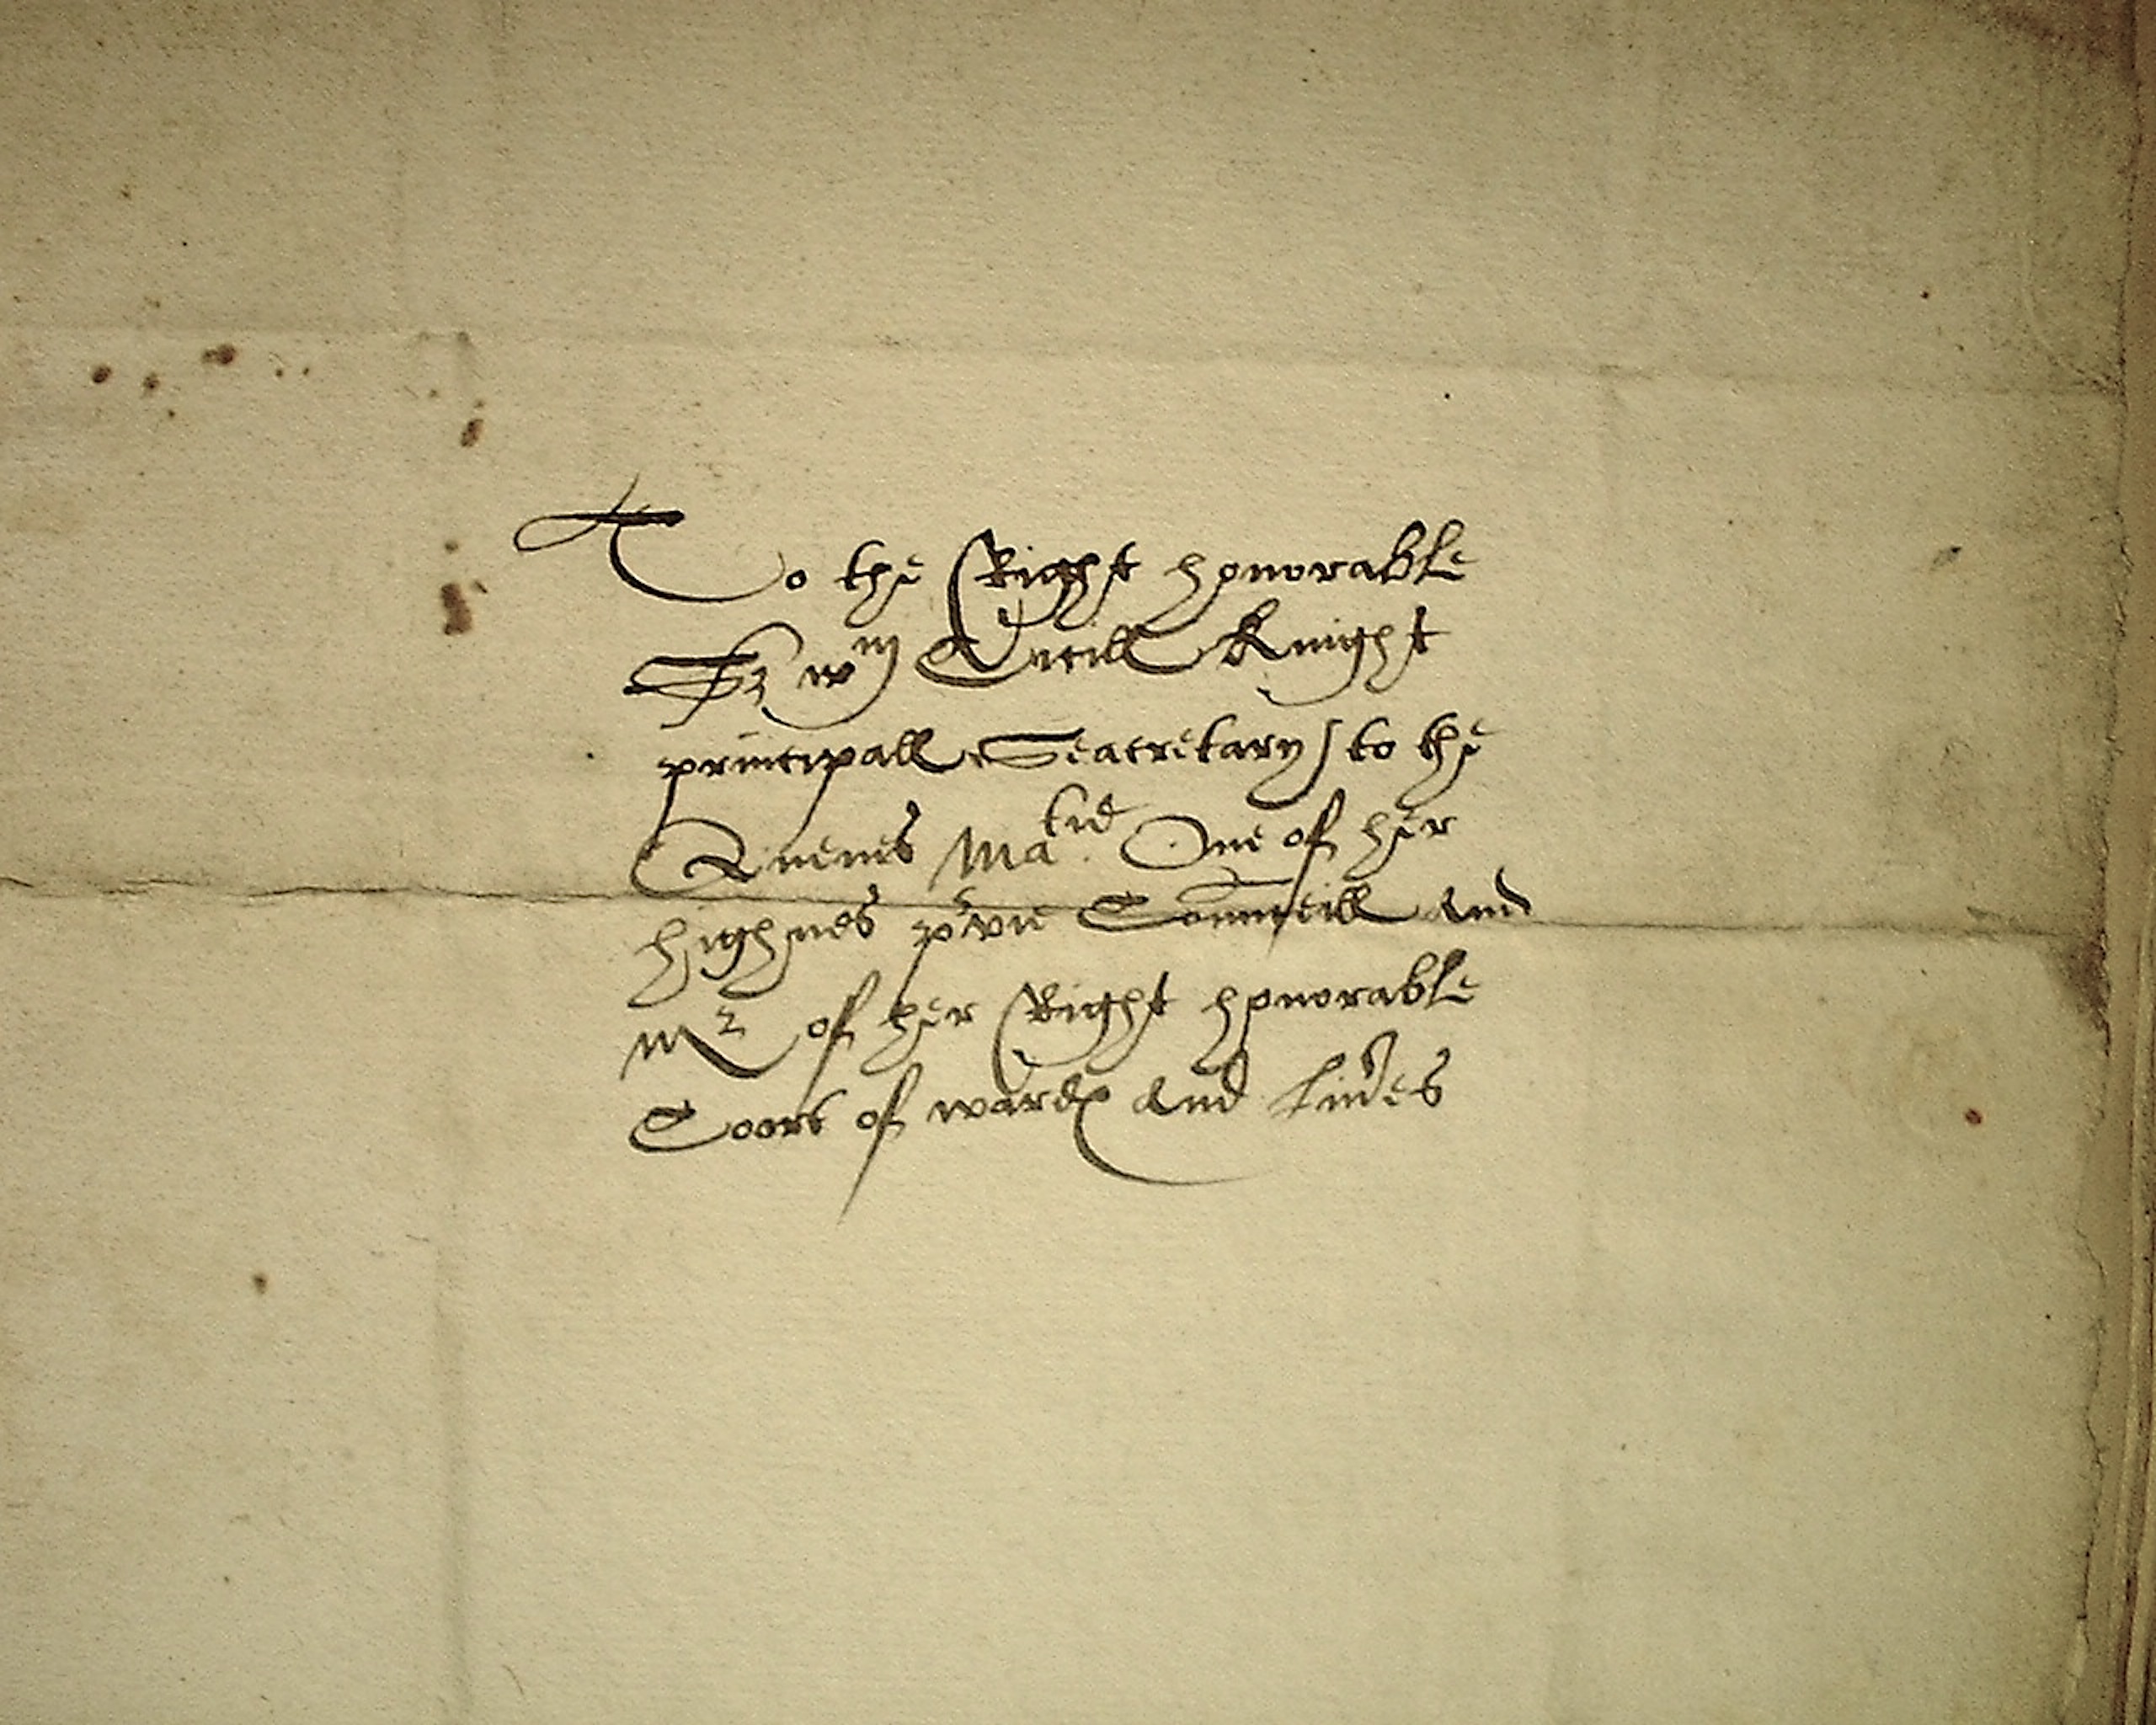 To the Right honorable
Sr wm Cecill Knight
principall Seacretary to the
Quenes Matie. One of her
highnes pivie Counceill And
Mr of her Right honorable
Coort of wards And Liv̓es